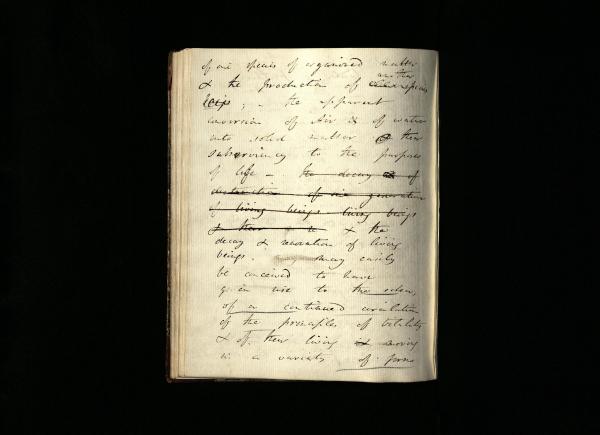 of one species of organized matter
another
& the production of species
; - the apparent
conversion of Air & of water
into solid matter & their
subserviency to the purposes
of life - the decay & of
destruction of one generation
of living beings living beings
& their & the
decay & renovation of living
beings. may easily
be conceived to have
given rise to the idea,
of a continued circulation
of the principles of vitality
& of their living & moving
in a variety of forms